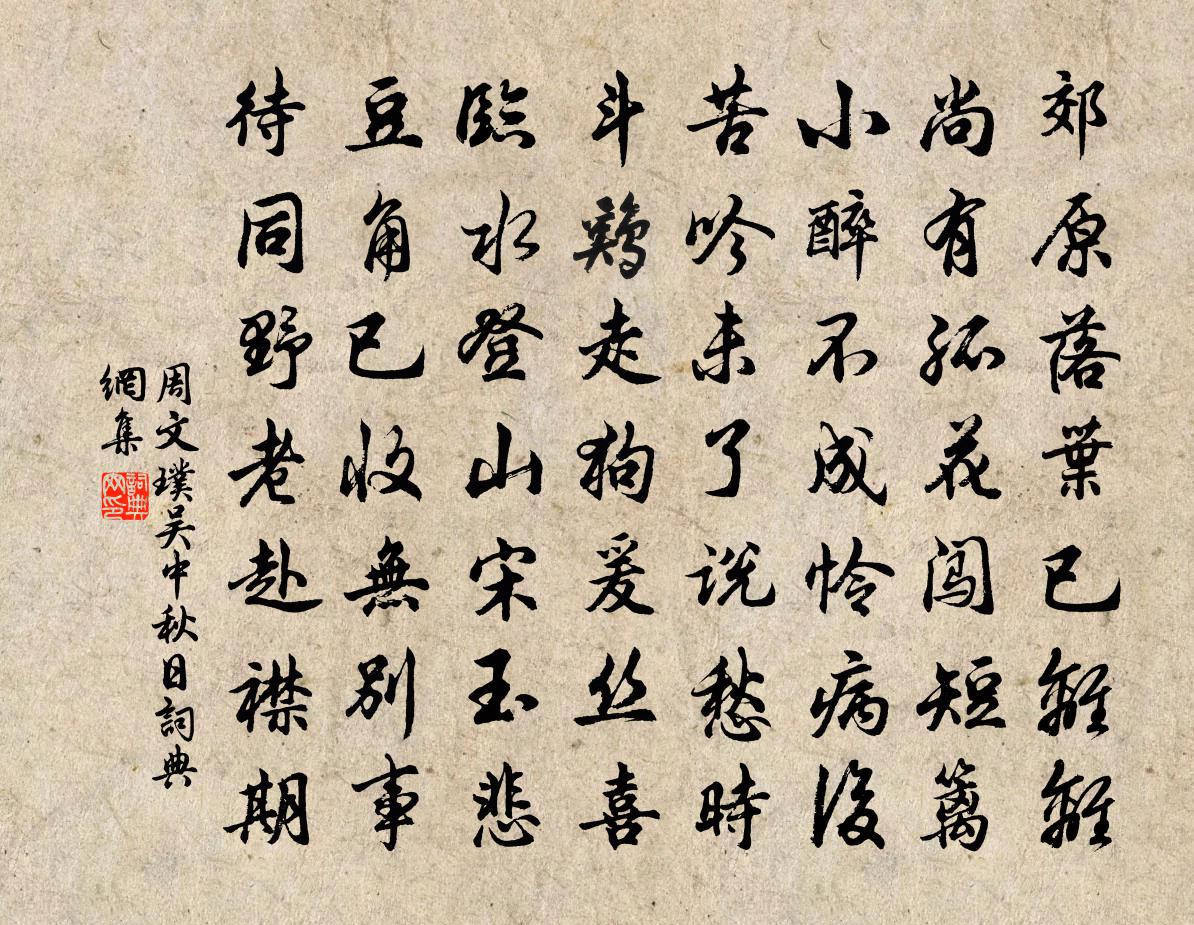 郊原落葉已離離
尚有孤花闯短篱
小醉不成怜病後
苦吟未了说愁時
斗鶏走狗爰丝喜
臨水登山宋玉悲
豆角已收無別事
待同野老赴襟期
周文璞吴中秋日詞典
網集
詞典網印